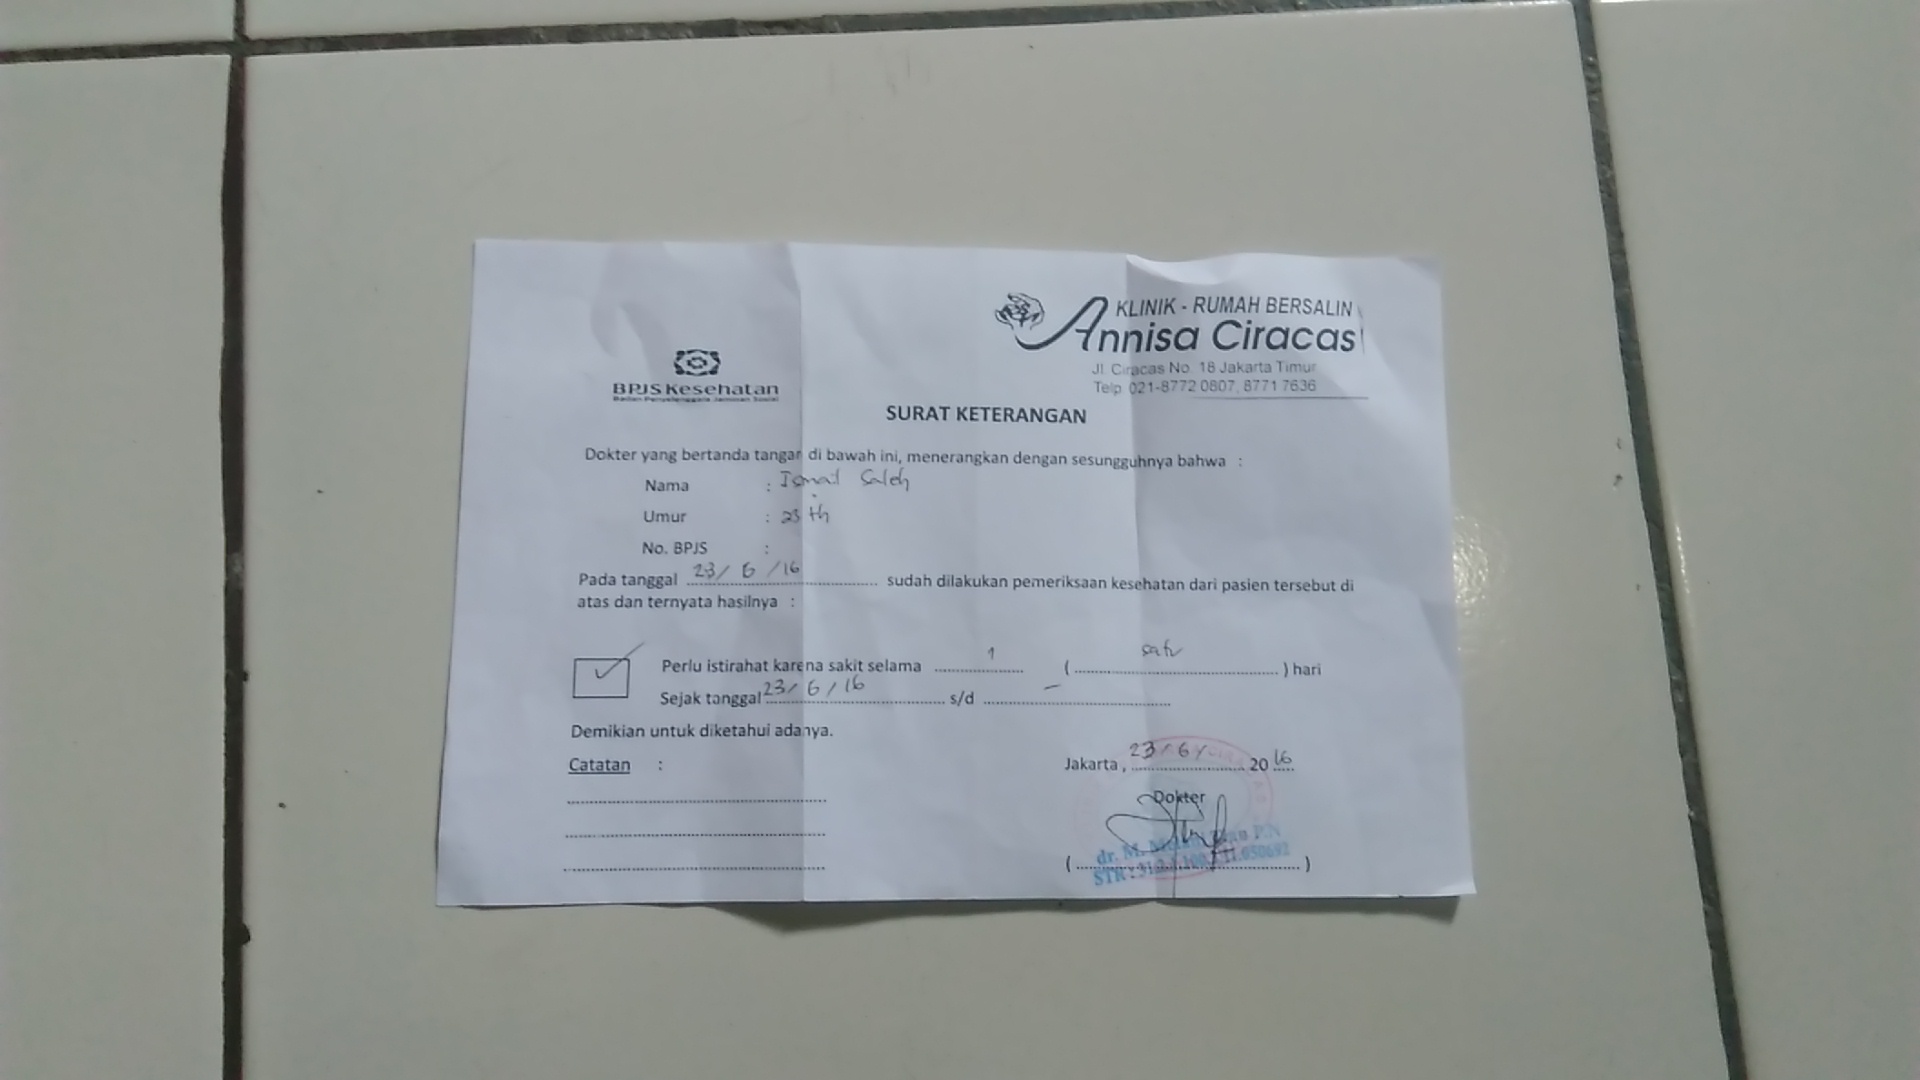 KLINIK - RUMAH BERSALIN
Annisa Ciracas
Jl. Ciracas No. 18 Jakarta Timur
Telp. 021-8772 0807, 8771 7636
BPJS Kesehatan
Badan Penyelenggara Jaminan Sosial
SURAT KETERANGAN
Dokter yang bertanda tangan di bawah ini, menerangkan dengan sesungguhnya bahwa :
Nama : Ismail Saleh
Umur : 23 th
No. BPJS :
Pada tanggal 23/6/16 sudah dilakukan pemeriksaan kesehatan dari pasien tersebut di
atas dan ternyata hasilnya :
Perlu istirahat karena sakit selama 1 ( satu ) hari
Sejak tanggal 23/6/16 s/d -
Demikian untuk diketahui adanya.
Catatan :
Jakarta, 23/6/ 2016
Dokter
dr. M. P.N
STR :